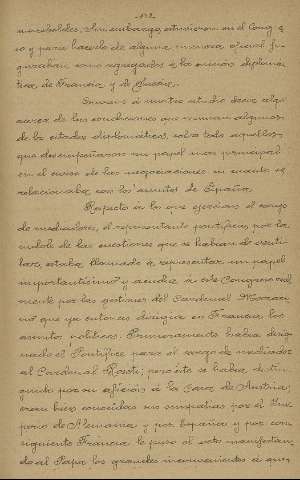 -112-
mareables. Sin embargo, estuvieron en el Congre
so y para hacerlo de alguna manera oficial fi-
guraban como agregados a la misión diploma-
tica, de Francia y de Suecia.
Servirá á nuestro estudio decir algo
acerca de las condiciones que reunían algunos
de los citados diplomáticos, sobre todo aquellos
que desempeñaron un papel mas principal
en el curso de las negociaciones en cuanto se
relacionaba con los asuntos de España.
Respecto á los que ejercían el cargo
de mediadores, el representante pontificio, por la
indole de las cuestiones que se habían de venti-
lar, estaba llamado á representar un papel
importantísimo y acudía a este Congreso
mente por las gestiones del Cardenal Mazari-
no que ya entonces dirigia en Francia, los
asuntos políticos. Primeramente había desig-
nado el Pontífice para el cargo de mediador
al Cardenal Roseti; pero éste se había distin-
guido por su afición á la Casa de Austria,
eran bien conocidas sus simpatias por el Im-
perio de Alemania y por España y por con-
siguiente Francia le puso el veto manifestan-
do al Papa los grandes inconvenientes á que